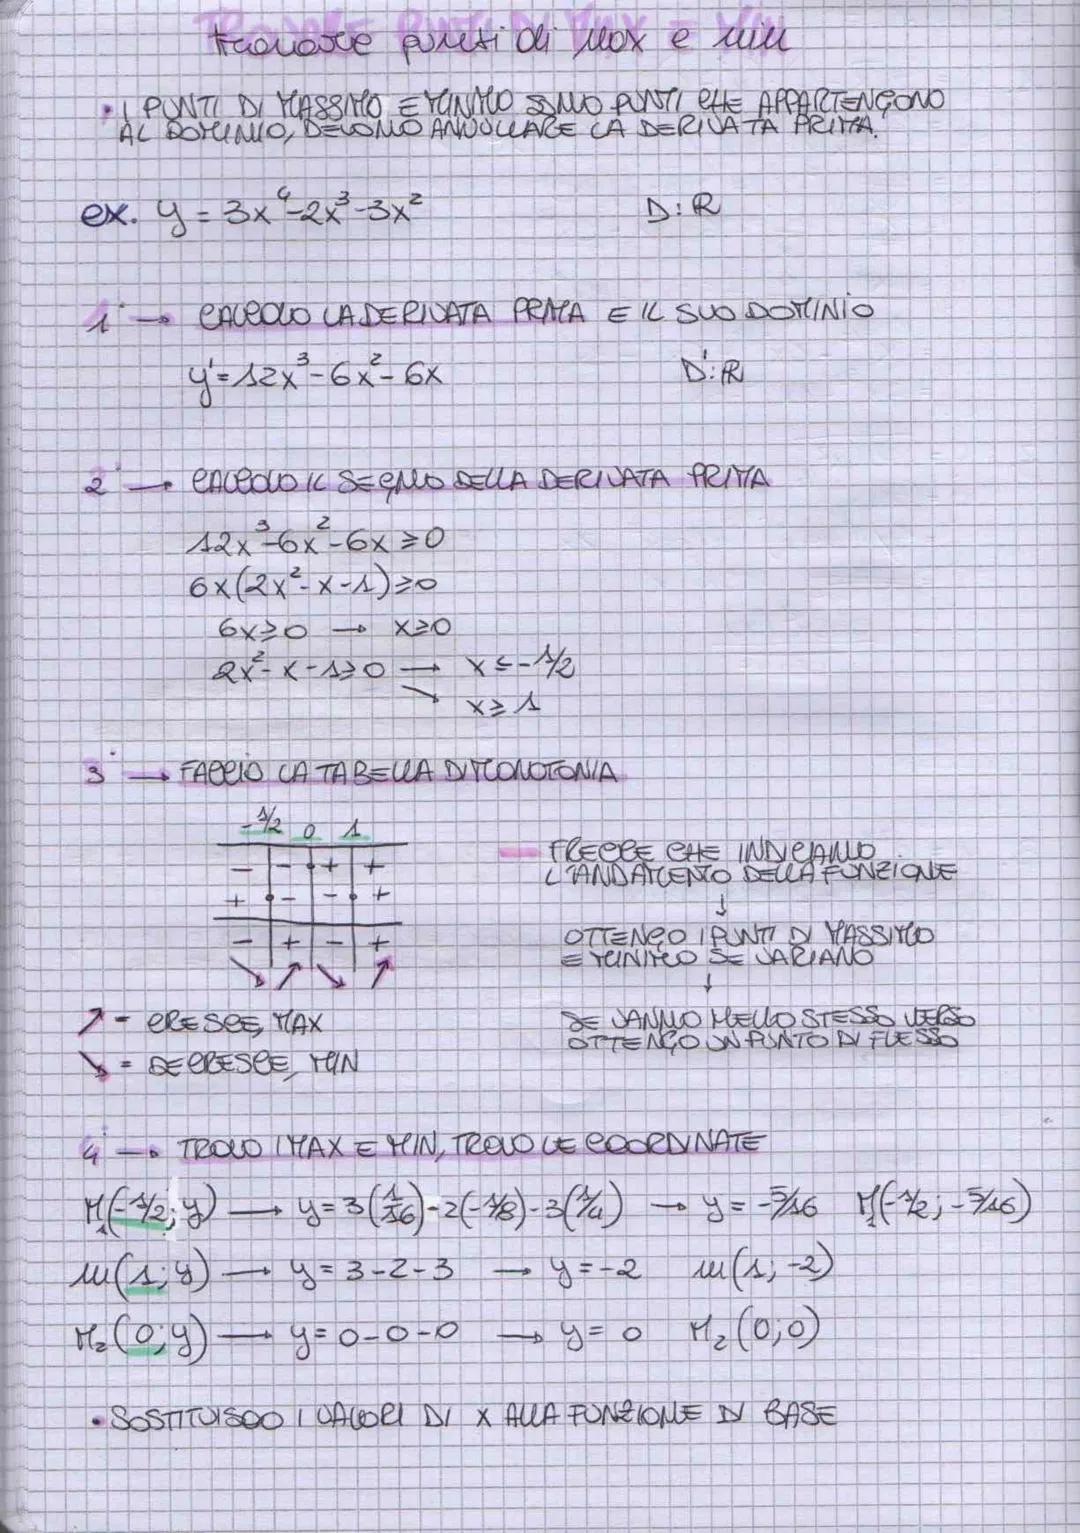 trovare punti di max e min
• I PUNTI DI MASSIMO E MINIMO SONO PUNTI CHE APPARTENGONO
AL DOMINIO, DEVONO ANNULLARE LA DERIVATA PRIMA.
ex. y = 3x⁴-2x³-3x² D: R
1° → CALCOLO LA DERIVATA PRIMA E IL SUO DOMINIO
y'=12x³-6x²-6x D': R
2° → CALCOLO IL SEGNO DELLA DERIVATA PRIMA
12x³-6x²-6x ≥0
6x(2x²-x-1)≥0
6x≥0 → x≥0
2x²-x-1≥0 → x≤-1/2
↘ x≥1
3° → FACCIO LA TABELLA DI MONOTONIA
-1/2 0 1
- - + +
+ - - +
- + - +
↘ ↗ ↘ ↗
FRECCE CHE INDICANO
L'ANDAMENTO DELLA FUNZIONE
↓
OTTENGO I PUNTI DI MASSIMO
E MINIMO SE VARIANO
↓
SE VANNO NELLO STESSO VERSO
OTTENGO UN PUNTO DI FLESSO
↗ = CRESCE, MAX
↘ = DECRESCE, MIN
4° → TROVO I MAX E MIN, TROVO LE COORDINATE
M₁(-1/2; y) → y=3(1/16)-2(-1/8)-3(1/4) → y=-5/16 M₁(-1/2; -5/16)
m(1; y) → y=3-2-3 → y=-2 m(1; -2)
M₂(0; y) → y=0-0-0 → y=0 M₂(0;0)
• SOSTITUISCO I VALORI DI X ALLA FUNZIONE DI BASE